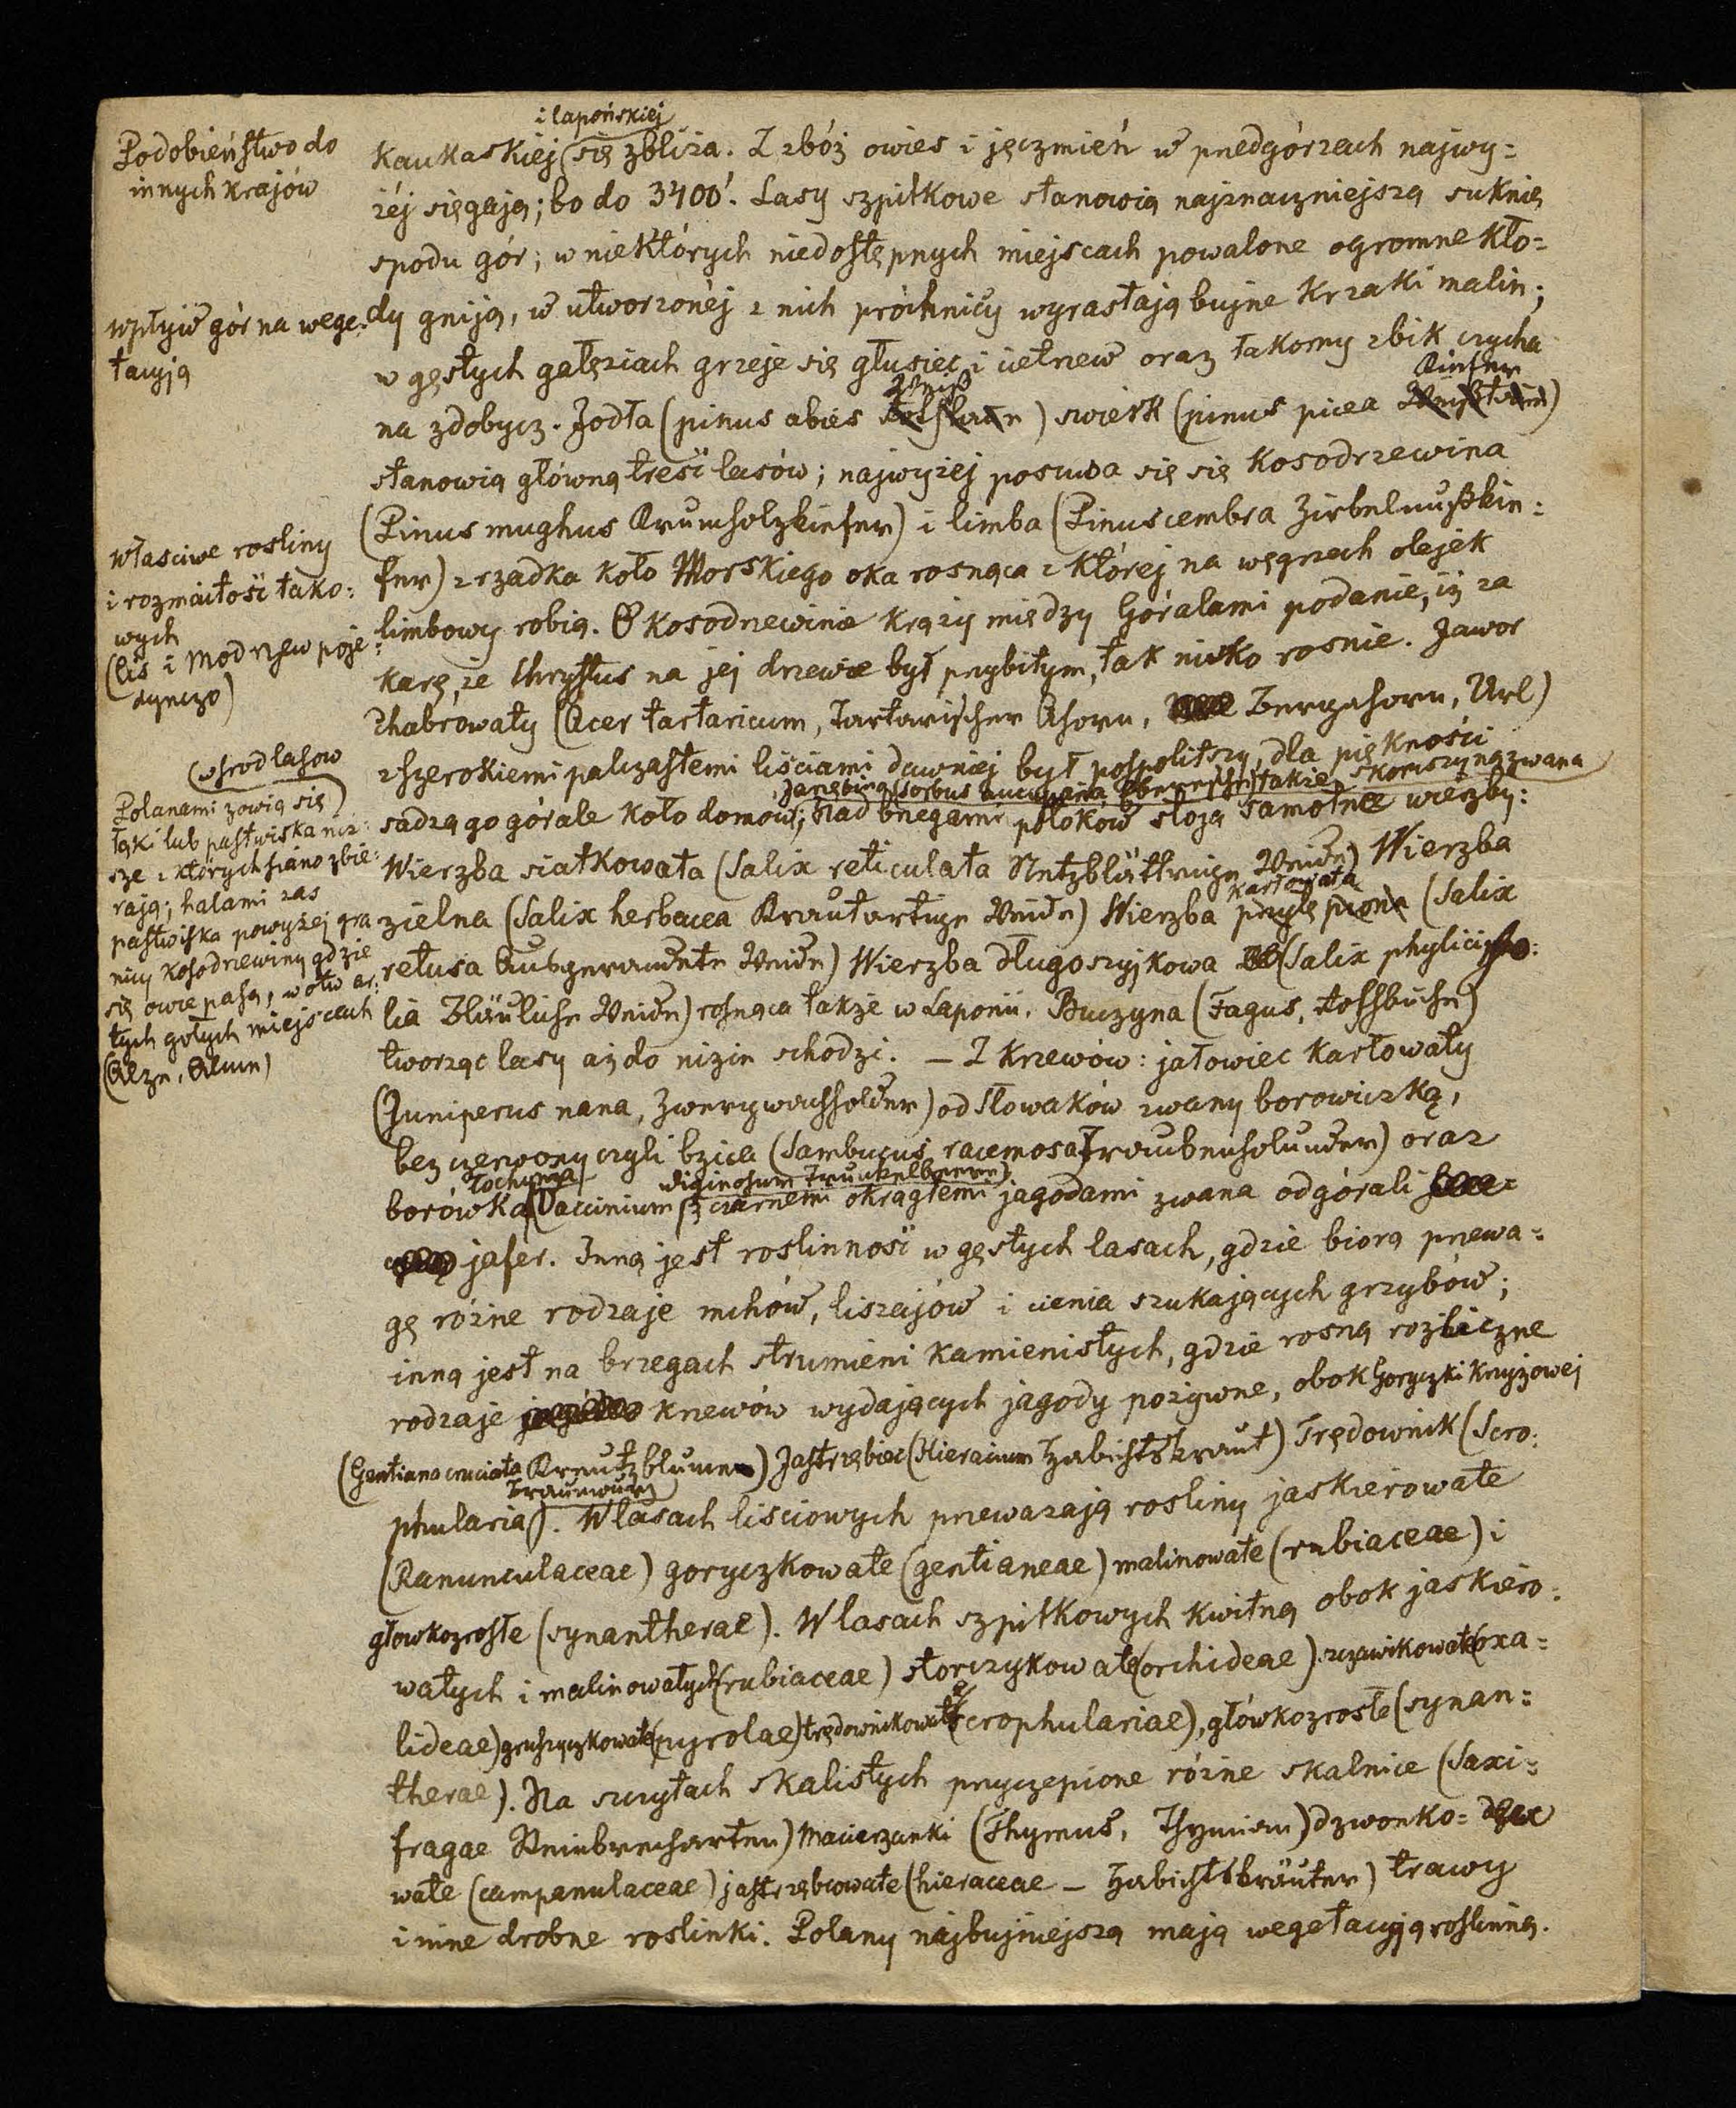 Podobieństwo do
innych krajów
wpływ gór na wege-
tacyją
własciwe rosliny
i rozmaitość tako:
wych
(Cis i Modrzew poje:
dynczo)
(wsrod lasow
Polanami zowią się)
łąki lub pastwiska niż:
sze z których siano zbie:
rają; halami zas
pastwiska powyżej gra
nicy kosodrzewiny gdzie
się owce pasą, w otwar:
tych gołych miejscach
(Alze, Alme)
i lapońskiej
Kaukaskiej (się zbliża. Z zbóż owies i jęczmień w przedgórzach najwy=
żéj sięgają; bo do 3400'. Lasy szpilkowe stanowią najznaczniejszą suknię
spodu gór; w niektórych niedostępnych miejscach powalone ogromne kło=
dy gniją, w utworzonéj z nich próchnicy wyrastają bujne krzaki malin;
w gęstych gałęziach grzeje się głusiec i cietrzew oraz łakomy zbik czycha
Kiefer
na zdobycz. Jodła (pinus abies) swierk (pinus picea)
stanowią główną treść lasów; najwyżej posuwa się się Kosodrzewina
(Pinus mughus Krumholzkiefer) i limba (Pinus cembra Zirbelnußkie:
fer) zrzadka koło Morskiego oka rosnąca z której na węgrzech olejek
limbowy robią. O kosodrzewinie krąży między Góralami podanie, iż za
karę, że Chrystus na jej drzewie był przybitym, tak nisko rosnie. Jawor
Chabrowaty (Acer tartaricum, Tartarischer Ahorn, Bergahorn, Url)
z szerokiemi palczastemi liściami dawniej był pospolitszy, dla piękności
Jarzębina (sorbus aucuparia Eberesche) także skoruszyną zwana
sadzą go górale koło domów; Nad brzegami potoków stoją samotne wierzby:
Wierzba siatkowata (Salix reticulata Netzblättrige Weide) Wierzba
karłowata
zielna (Salix herbacea Krautartige Weide) Wierzba (Salix
retusa Ausgerandete Weide) Wierzba długoszyjkowa (Salix phylicifo:
lia Bläuliche Weide) rosnąca także w Laponii. Buczyna (Fagus, Rothbuche)
tworząc lasy aż do nizin schodzi. — Z krzewów: jałowiec karłowaty
(Juniperus nana, Zwergwachholder) od Słowaków zwany borowiczką,
bez czerwony czyli bzica (Sambucus racemosa Traubenholunder) oraz
Łochynia uliginosum Trunkelbeere)
borówka (Vaccinium z czarnemi okrągłemi jagodami zwana od górali
jafer. Inną jest roslinność w gęstych lasach, gdzie biorą przewa=
gę różne rodzaje mchów, liszajów i cienia szukających grzybów;
inną jest na brzegach strumieni kamienistych, gdzie rosną rozliczne
rodzaje krzewów wydających jagody pożywne, obok Goryczki krzyżowej
(Gentiana cruciata Kreutzblume) Jastrzębiec (Hieracium Habichtskraut) Trędownik (Scro:
Braunwurz)
phularia). W lasach liściowych przeważają rosliny jaskierowate
(Ranunculaceae) goryczkowate (gentianeae) malinowate (rubiaceae) i
głowkozrosłe (synantherae). W lasach szpilkowych kwitną obok jaskiero:
watych i malinowatych (rubiaceae) storczykowate (orchideae) szczawikowate (oxa=
lideae) gruszyczkowate (pyrolae) trędownikowate (scrophulariae), główkozrosłe (synan=
therae). Na szczytach skalistych przyczepione różne skalnice (Saxi=
fragae Steinbrecharten) Macierzanki (Thymus, Thymian) dzwonko=
wate (campanulaceae) jastrzębcowate (hieraceae — Habichtskräuter) trawy
i inne drobne roslinki. Polany najbujniejszą mają wegetacyją roslinną.